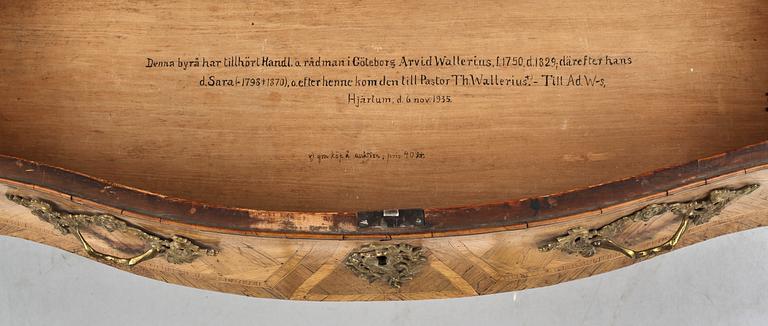 Denna byrå har tillhört Handl. o. rådman i Göteborg Arvid Wallerius, f. 1750, d. 1829; därefter hans
d. Sara (-1798 † 1870), o. efter henne kom den till Pastor Th. Wallerius.*) - Till Ad. W-s,
Hjärtum, d. 6 nov. 1935.
*) gm köp å auktion; pris 40 kr.